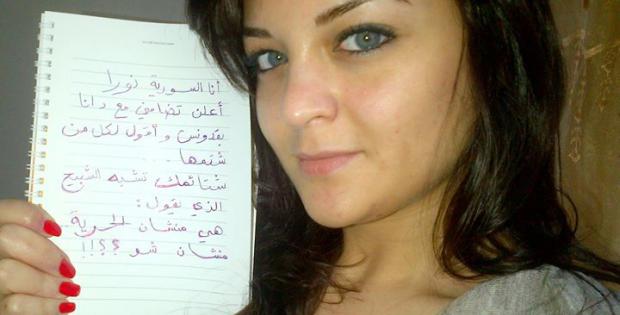 أنا السورية نورا
أعلن تضامني مع دانا
بقدونس وأقول لكل من
شتمها..
شتائمك تشبه الشبيح
الذي يقول:
هي منشان الحرية
منشان شو ؟؟؟!!!